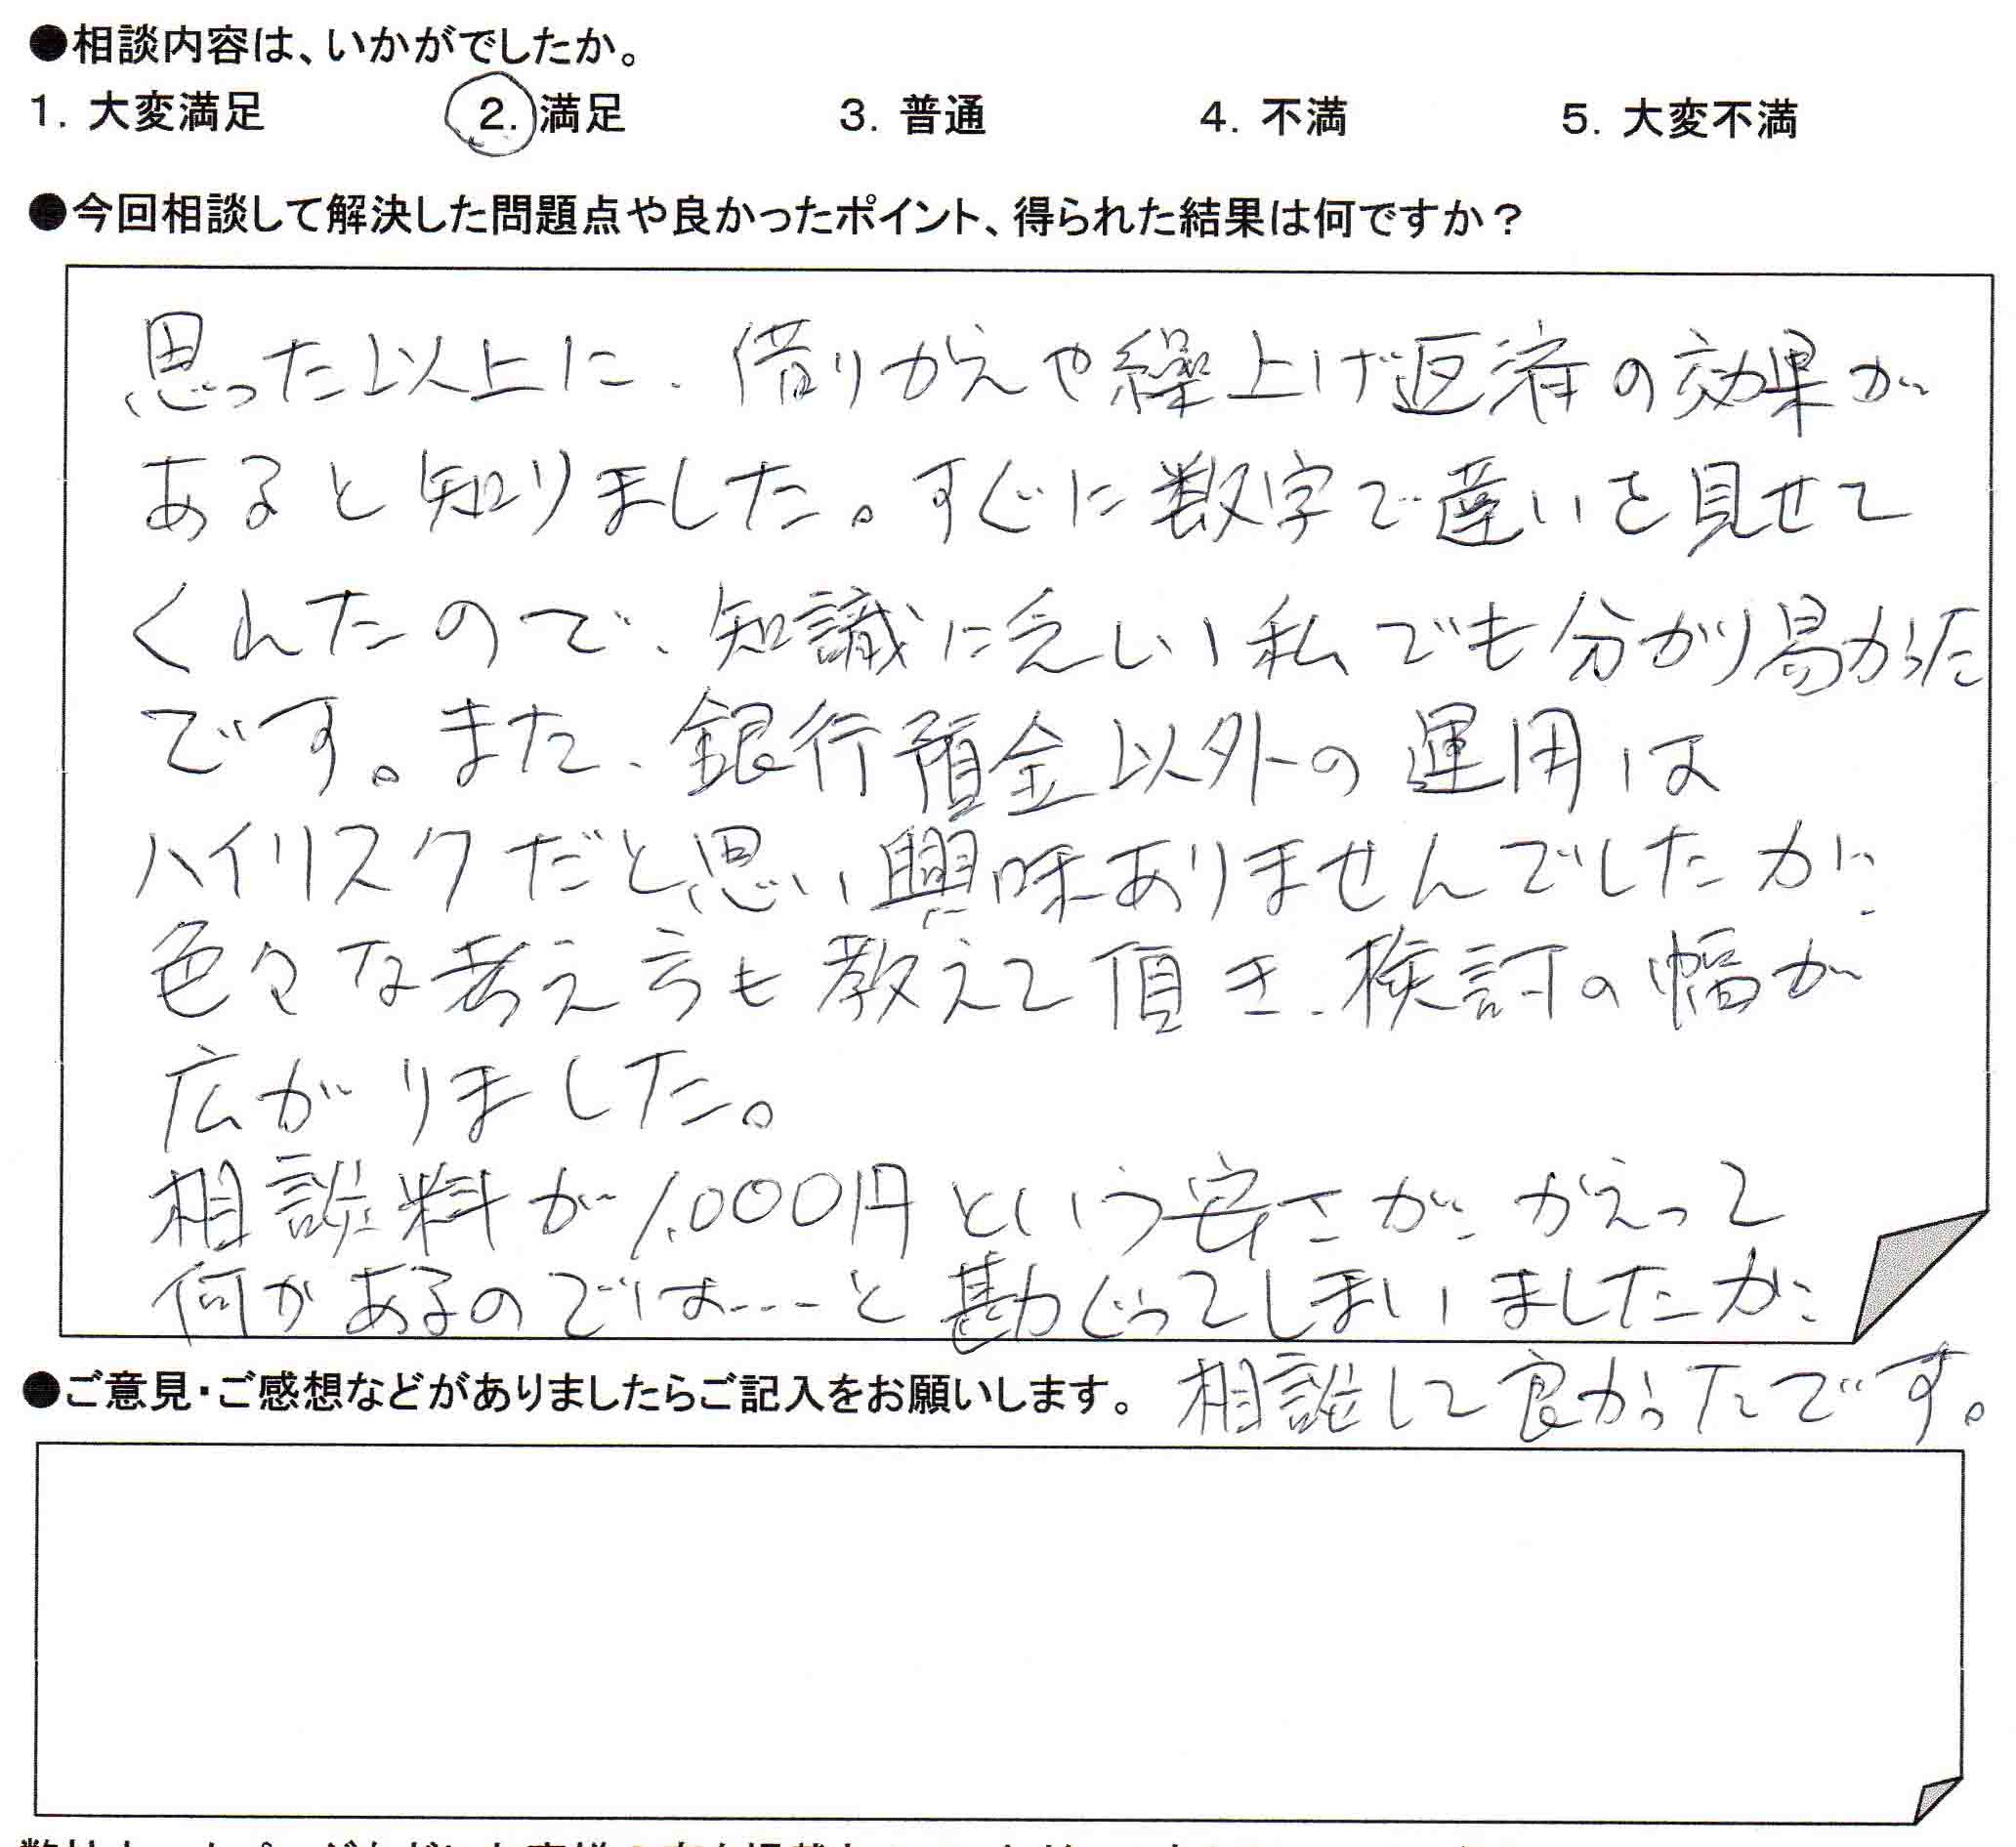 ●相談内容は、いかがでしたか。
1. 大変満足 2. 満足 3. 普通 4. 不満 5. 大変不満
●今回相談して解決した問題点や良かったポイント、得られた結果は何ですか?
思った以上に、借りかえや繰上げ返済の効果が
あると知りました。すぐに数字で違いを見せて
くれたので、知識に乏しい私でも分かり易かった
です。また、銀行預金以外の運用は
ハイリスクだと思い興味ありませんでしたが、
色々な考え方も教えて頂き、検討の幅が
広がりました。
相談料が1,000円という安さが、かえって
何かあるのでは---と勘ぐってしまいましたが、
相談して良かったです。
●ご意見・ご感想などがありましたらご記入をお願いします。